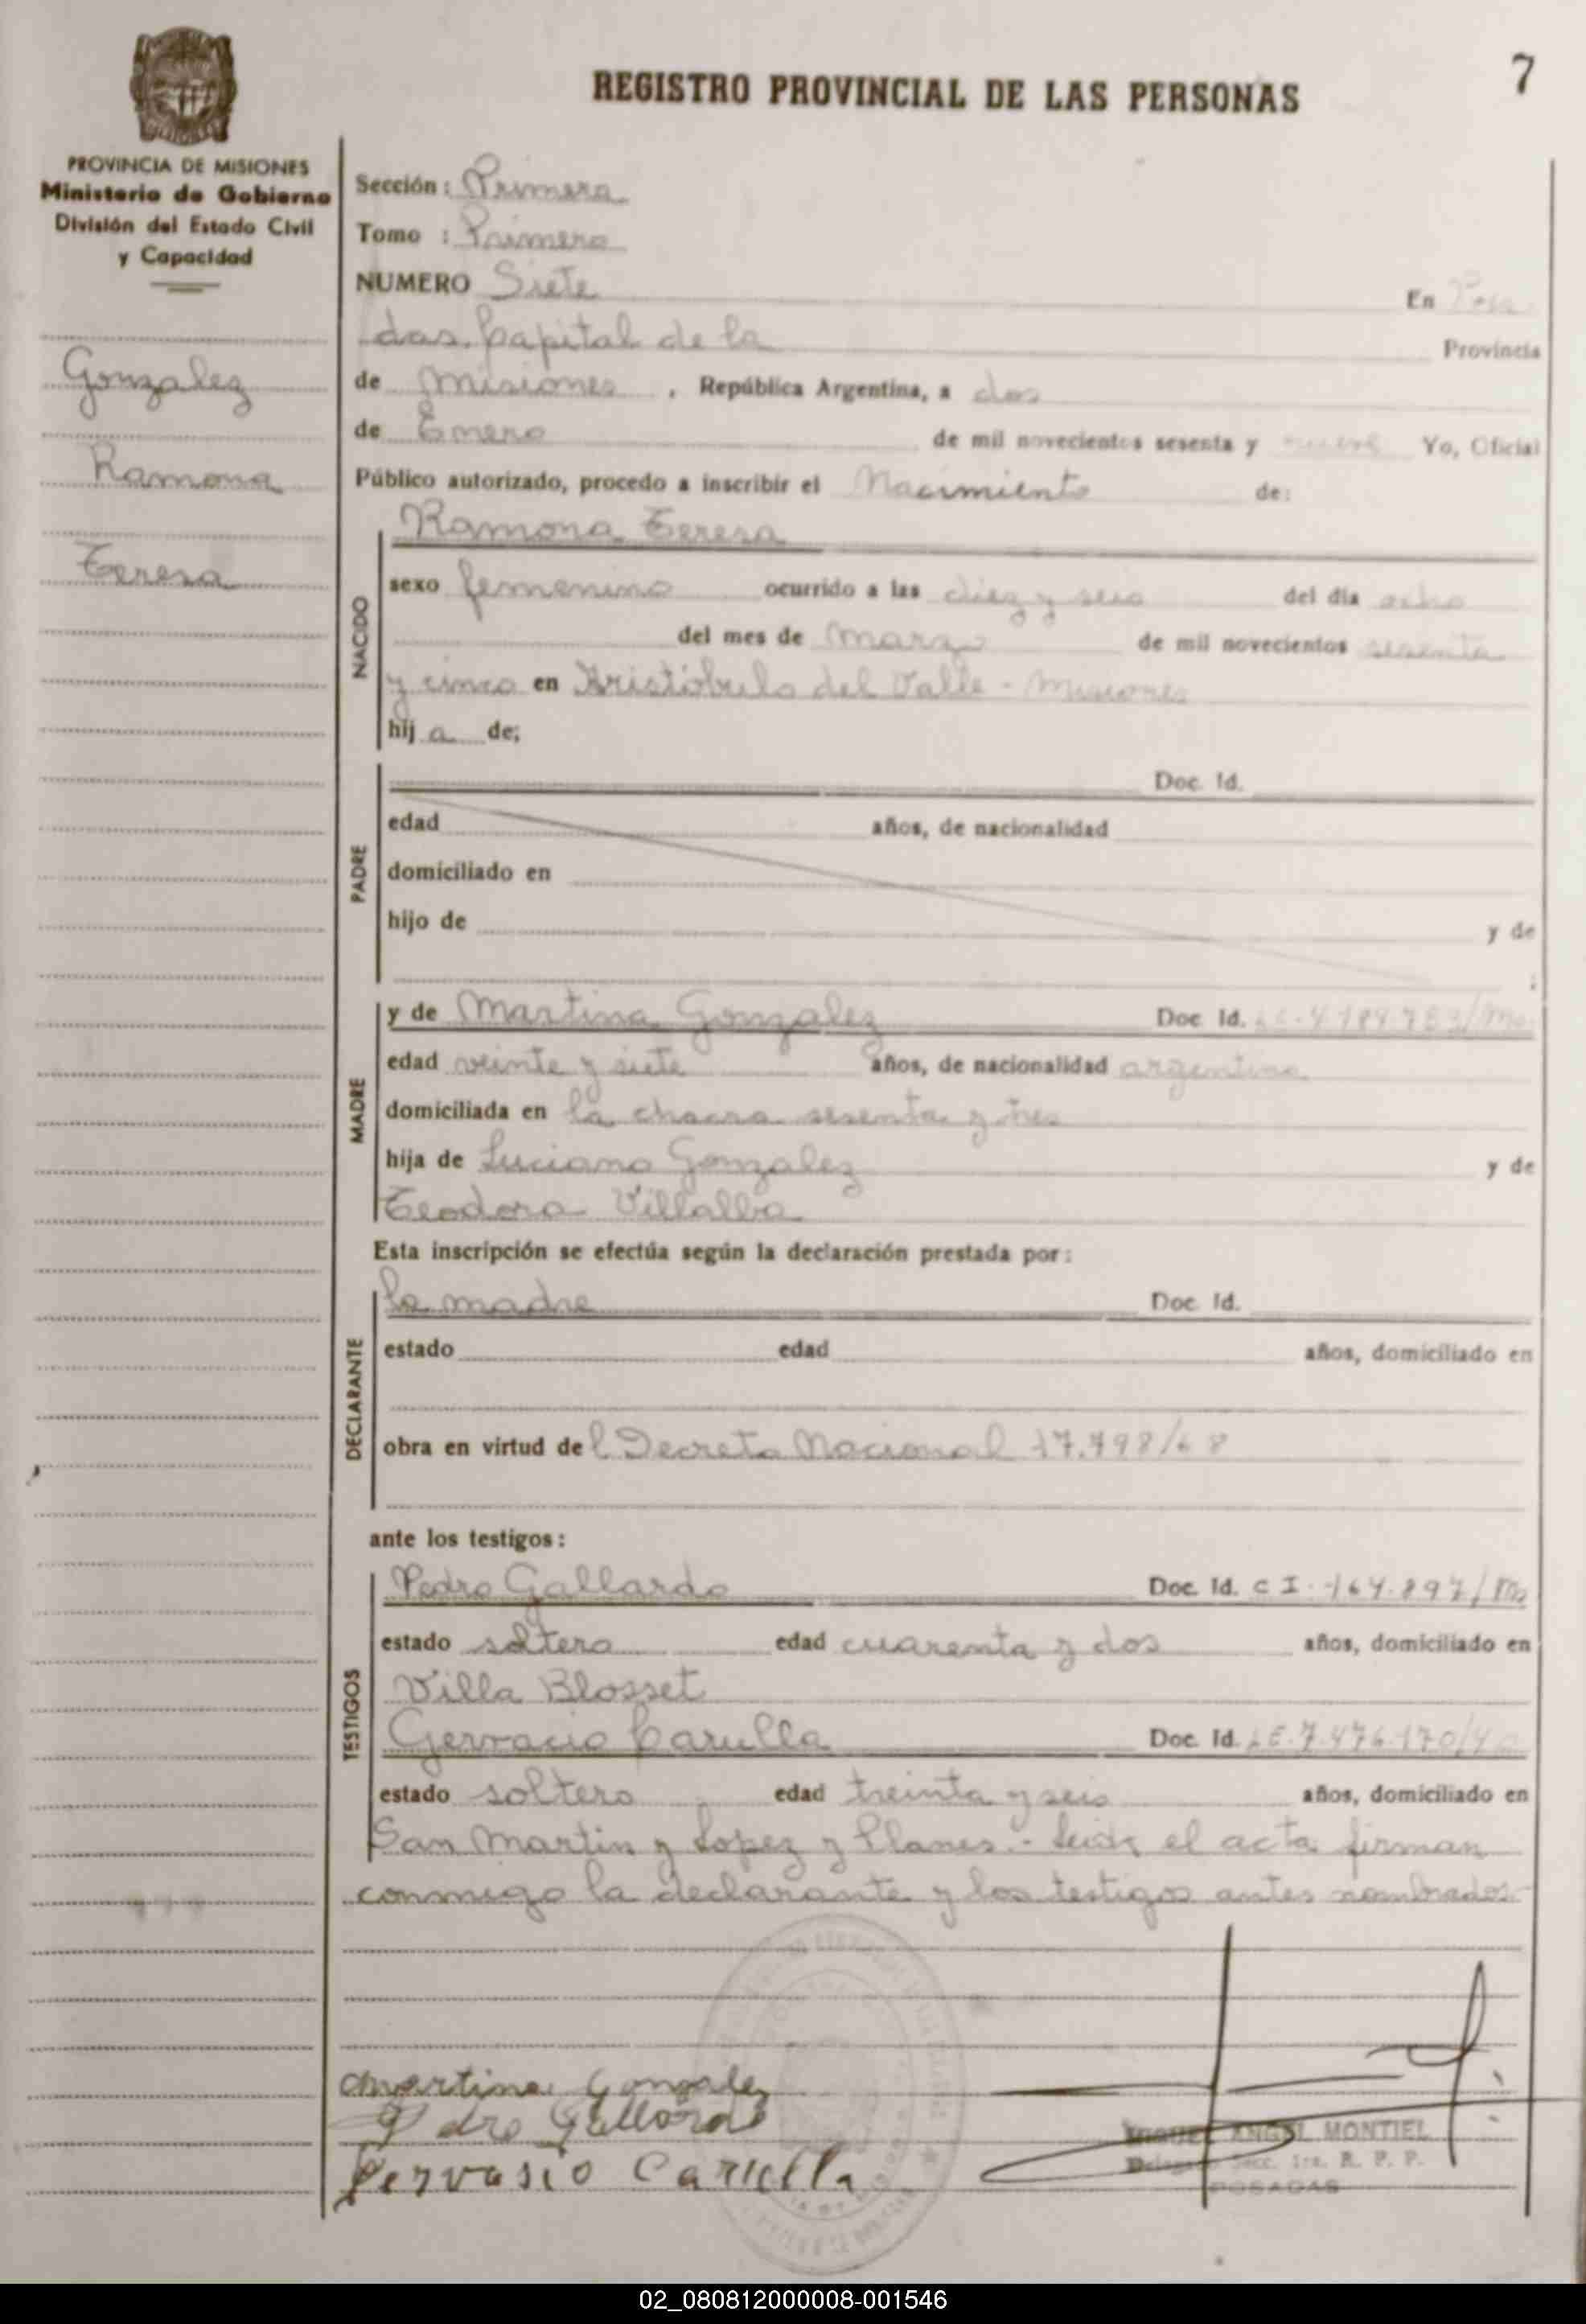 REGISTRO PROVINCIAL DE LAS PERSONAS
7
PROVINCIA DE MISIONES
Ministerio de Gobierno
División del Estado Civil
y Capacidad
Gonzalez
Ramona
Teresa
Sección: Primera
Tomo : Primero
NUMERO Siete En Posa
das. Capital de la Provincia
de Misiones, República Argentina, a dos
de Enero de mil novecientos sesenta y nueve Yo, Oficial
Público autorizado, procedo a inscribir el Nacimiento de:
NACIDO
Ramona Teresa
sexo femenino ocurrido a las diez y seis del día ocho
del mes de marzo de mil novecientos sesenta
y cinco en Aristóbulo del Valle - Misiones
hija de;
PADRE
Doc. Id.
edad años, de nacionalidad
domiciliado en
hijo de y de
MADRE
y de Martina Gonzalez Doc. Id.
edad veinte y siete años, de nacionalidad argentina
domiciliada en la chacra sesenta y tres
hija de Luciano Gonzalez y de
Teodora Villalba
Esta inscripción se efectúa según la declaración prestada por:
DECLARANTE
la madre Doc. Id.
estado edad años, domiciliado en
obra en virtud del Decreto Nacional 17.798/68
ante los testigos:
TESTIGOS
Pedro Gallardo Doc. Id. C I. 164.897/Ms
estado soltero edad cuarenta y dos años, domiciliado en
Villa Blosset
Gervacio Carulla Doc. Id. LE. 7.476.170
estado soltero edad treinta y seis años, domiciliado en
San Martin y Lopez y Planes.- Leida el acta firman
conmigo la declarante y los testigos antes nombrados-
Martina Gonzalez
Pedro Gallardo
Gervasio Carulla
MIGUEL ANGEL MONTIEL
Delegado Secc. 1ra. R. P. P.
POSADAS
02_080812000008-001546